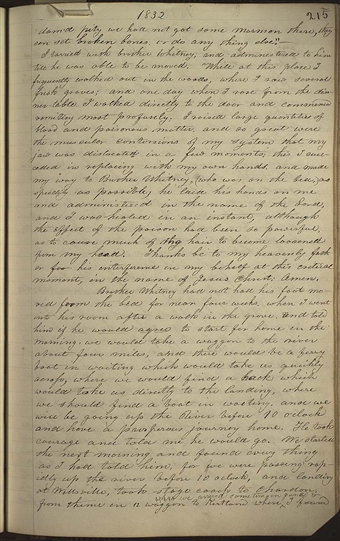 1832 215
damd pity we had not got some Mormon there, they
can set broken bones or do any thing else."—
I tarried with brother Whitney, and administered to him
till he was able to be moved. While at this place I
frequently walked out in the woods, where I saw several
fresh graves; and one day when I rose from the din-
ner table I walked directly to the door and commenced
vomiting most profusely. I raised large quantities of
blood and poisonous matter, and so great were
the muscular contortions of my system that my
jaw was dislocated in a few moments, this I succ-
eeded in replacing with my own hands, and made
my way to Brother Whitney, (who was on the bed,) as
speedily as possible, he laid his hands on me
and administered in the name of the Lord,
and I was healed in an instant, although
the effect of the poison had been so powerful,
as to cause much of the hair to become loosened
from my head. Thanks be to my heavenly father
for his interference in my behalf at this critical
moment, in the name of Jesus Christ. Amen.
Brother Whitney had not had his foot mo-
ved from the bed for near four weeks, when I went
into his room after a walk in the grove, and told
him if he would agree to start for home in the
morning, we would take a waggon to the river
about four miles, and there would be a ferry
boat in waiting which would take us quickly
across, where we would find a hack which
would take us directly to the landing, where
we should find a boat in waiting, and we
will be going up the River before 10 o'clock
and have a prosperous journey home. He took
courage and told me he would go. We started
the next morning and found every thing
as I had told him, for we were passing rap-
idly up the river before 10 o'clock, and landing
at Wellsville, took stage coach to Chardon,
from thence in a waggon to Kirtland where I found
where we arrived some time in June